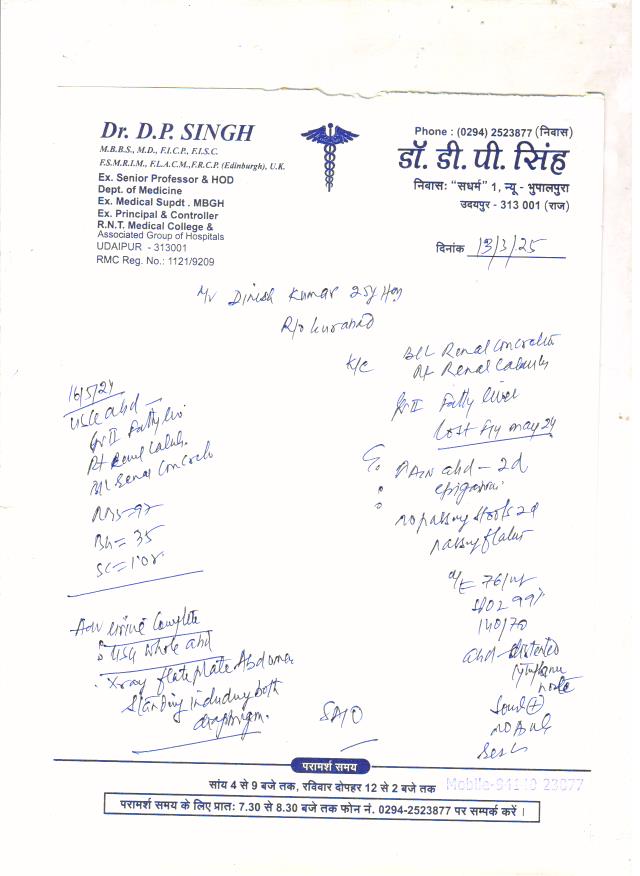 Dr. D.P. SINGH
M.B.B.S., M.D., F.I.C.P., F.I.S.C.
F.S.M.R.I.M., F.L.A.C.M.,F.R.C.P. (Edinburgh), U.K.
Ex. Senior Professor & HOD
Dept. of Medicine
Ex. Medical Supdt . MBGH
Ex. Principal & Controller
R.N.T. Medical College &
Associated Group of Hospitals
UDAIPUR - 313001
RMC Reg. No.: 1121/9209
Phone : (0294) 2523877 (निवास)
डॉ. डी. पी. सिंह
निवासः "सधर्म" 1, न्यू - भुपालपुरा
उदयपुर - 313 001 (राज)
दिनांक 13/3/25
Mr Dinesh Kumar 25y
R/o
K/c
Renal
Rt Renal
Gr II Fatty liver
Lost F/u May 24
Pain abd - 2d
no passing stools 2d
passing flatus
O/E 76/
SPO2 99%
140/70
abd - distented
16/5/24
USG abd -
Gr II Fatty
Rt Renal
Renal
RBS = 97
BU = 35
SC = 1.08
Adv urine complete
USG whole abd
Xray flat plate Abdomen
standing including both
diaphragm.
परामर्श समय
सांय 4 से 9 बजे तक, रविवार दोपहर 12 से 2 बजे तक
परामर्श समय के लिए प्रातः 7.30 से 8.30 बजे तक फोन नं. 0294-2523877 पर सम्पर्क करें ।